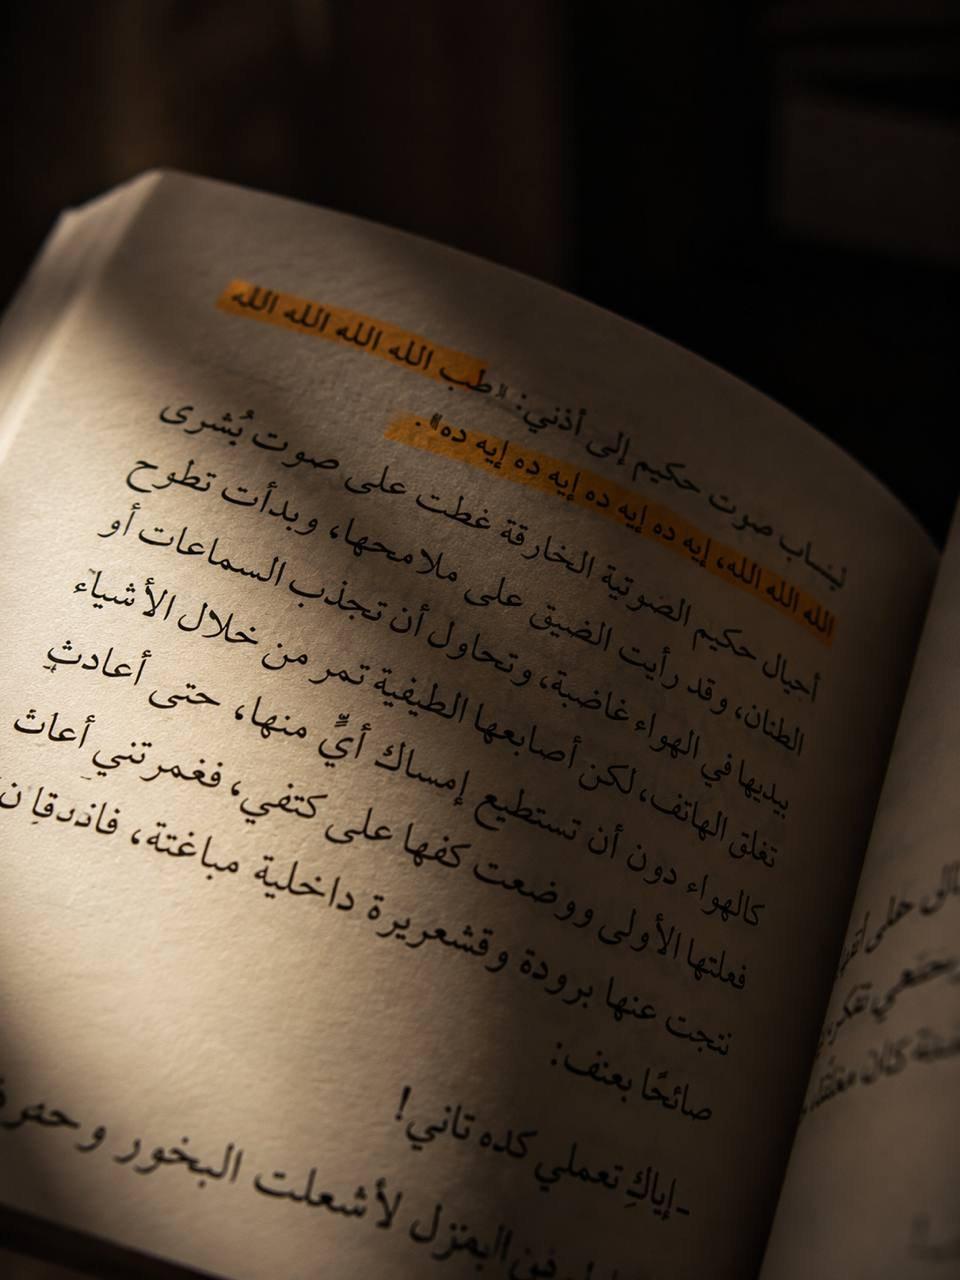 لينساب صوت حكيم إلى أذني: «طب الله الله الله الله
الله الله الله، إيه ده إيه ده إيه ده إيه ده».
أحبال حكيم الصوتية الخارقة غطت على صوت بُشرى
الطنان، وقد رأيت الضيق على ملامحها، وبدأت تطوح
بيديها في الهواء غاضبة، وتحاول أن تجذب السماعات أو
تغلق الهاتف، لكن أصابعها الطيفية تمر من خلال الأشياء
كالهواء دون أن تستطيع إمساك أيٍّ منها، حتى أعادت
فعلتها الأولى ووضعت كفها على كتفي، فغمرتني
نتجت عنها برودة وقشعريرة داخلية مباغتة،
صائحًا بعنف:
-إياكِ تعملي كده تاني!
المنزل لأشعلت البخور و